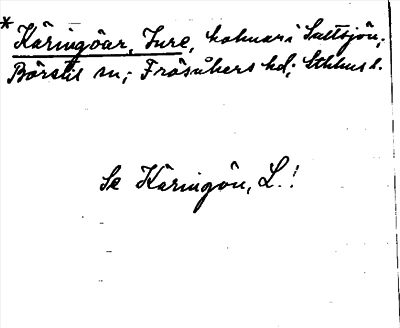 * Käringöar, Ture, holmar i Saltsjön;
Börstil sn; Frösåkers hd; Sthlms l.
Se Käringön, L.!